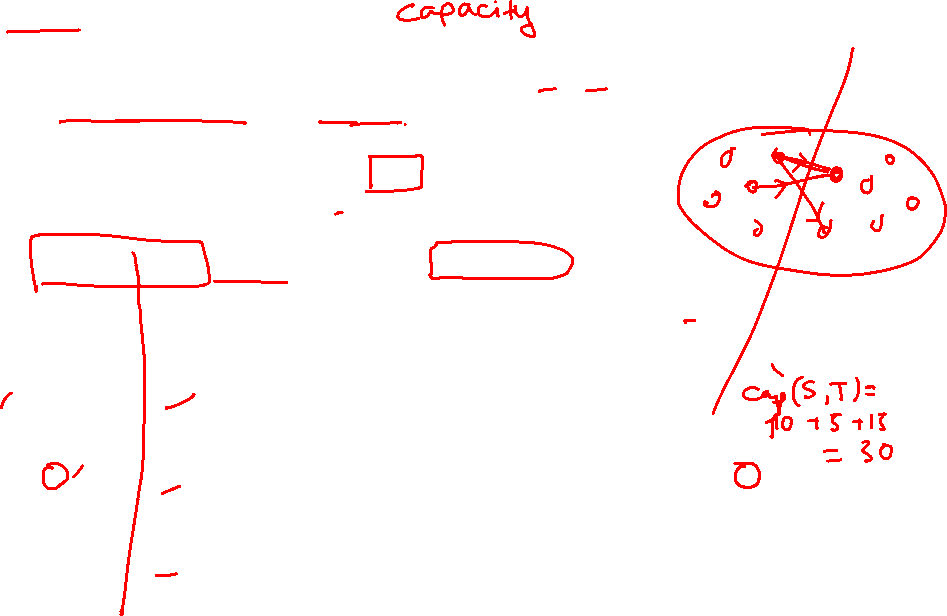 capacity
cap(S,T)=
10 + 5 + 15
= 30